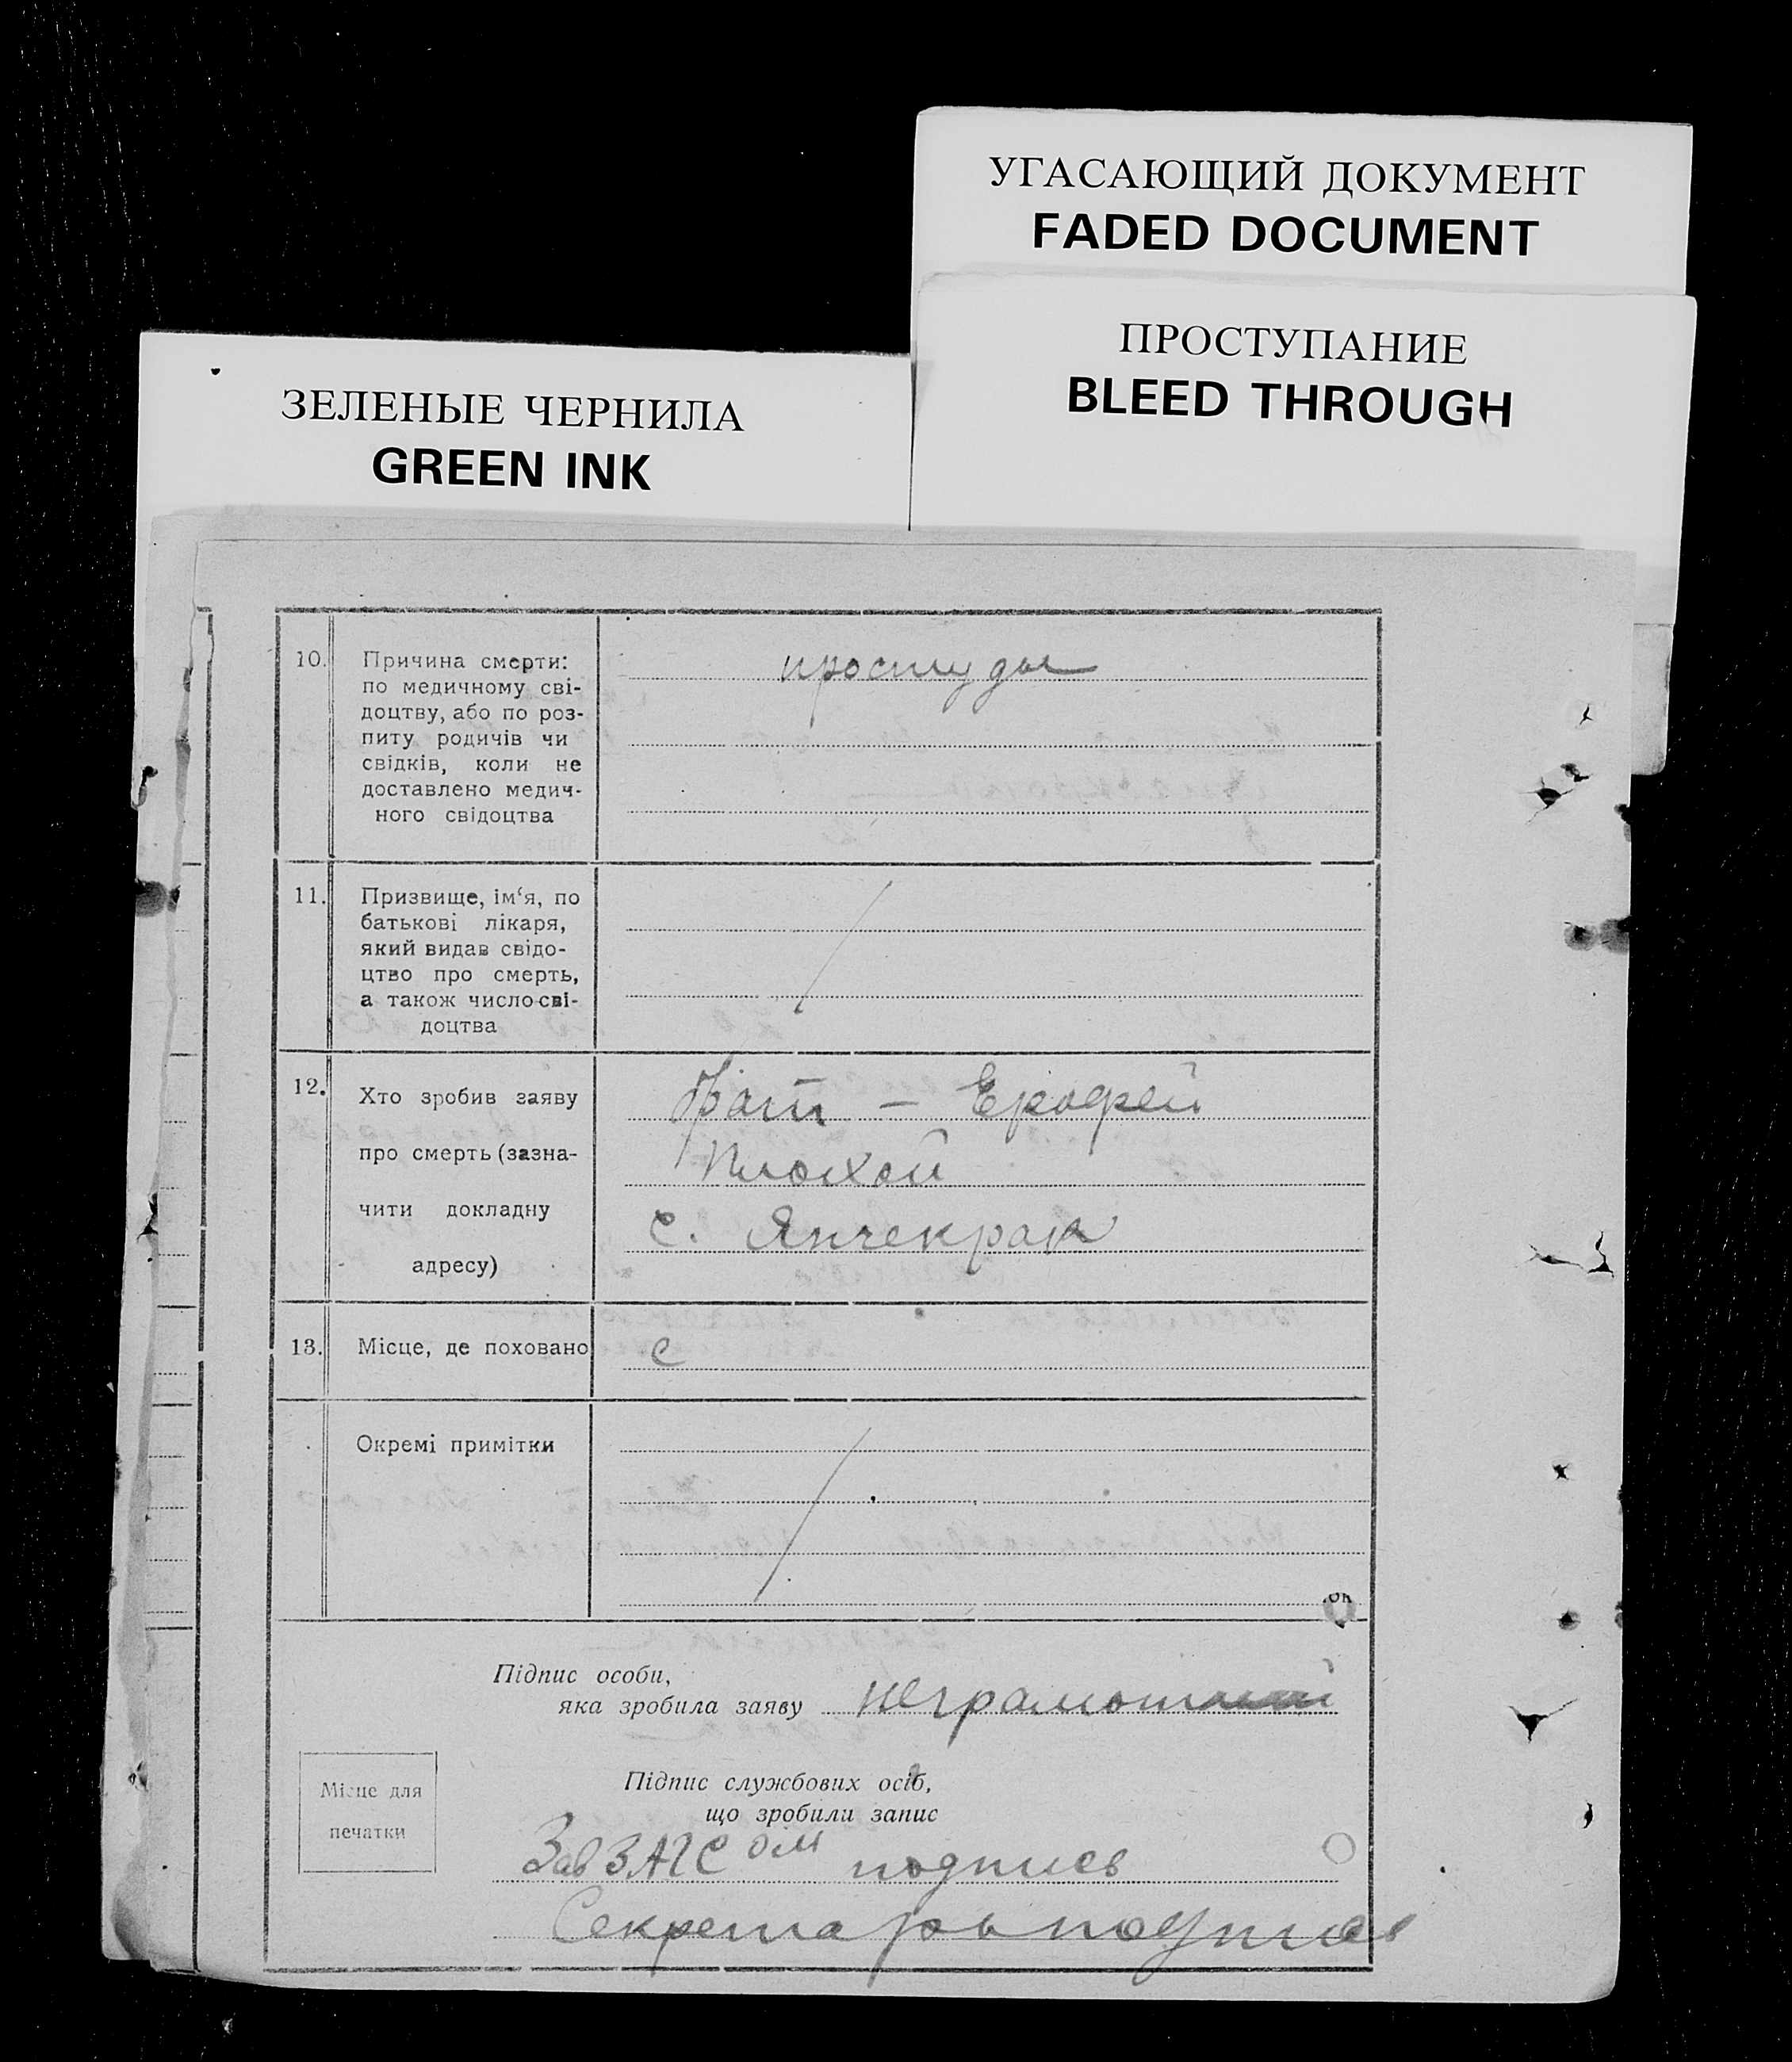 УГАСАЮЩИЙ ДОКУМЕНТ
FADED DOCUMENT
ПРОСТУПАНИЕ
BLEED THROUGH
ЗЕЛЕНЫЕ ЧЕРНИЛА
GREEN INK
10. Причина смерти:
по медичному сві-
доцтву, або по роз-
питу родичів чи
свідків, коли не
доставлено медич-
ного свідоцтва
простуды
11. Призвище, ім‘я, по
батькові лікаря,
який видав свідо-
цтво про смерть,
а також число сві-
доцтва
12. Хто зробив заяву
про смерть (зазна-
чити докладну
адресу)
Брат – Ерофей
Плохой
с. Янчекрак
13. Місце, де поховано
с
Окремі примітки
Підпис особи,
яка зробила заяву неграмотный
Місце для
печатки
Підпис службових осіб,
що зробили запис
Зав ЗАГСом подпись
Секретарь подпись